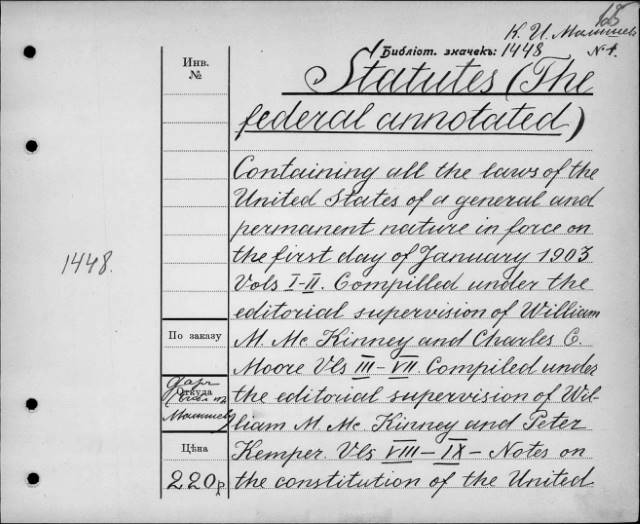 68
К. И.
Библіот. значекъ: 1448 № 4.
Инв.
№
Statutes (The
federal annotated)
Containing all the laws of the
United States of a general and
permanent nature in force on
the first day of January 1903
Vols I-II. Compilled under the
editorial supervision of William
M. Mc. Kinney and Charles C.
Moore Vls III–VII. Compiled under
the editorial supervision of Wil-
liam M. Mc. Kinney and Peter
Kemper. Vls VIII–IX– Notes on
the constitution of the United
1448.
По заказу
Откуда
Цѣна
220р